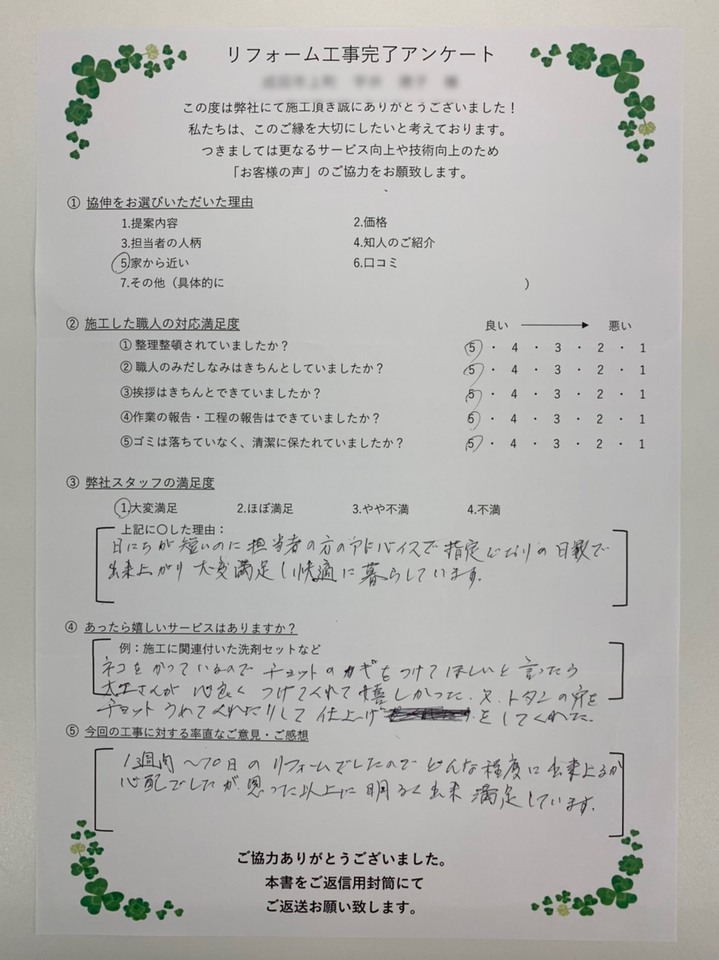 リフォーム工事完了アンケート
この度は弊社にて施工頂き誠にありがとうございました!
私たちは、このご縁を大切にしたいと考えております。
つきましては更なるサービス向上や技術向上のため
「お客様の声」のご協力をお願致します。
① 協伸をお選びいただいた理由
1.提案内容 2.価格
3.担当者の人柄 4.知人のご紹介
5.家から近い 6.口コミ
7.その他（具体的に ）
② 施工した職人の対応満足度 良い 悪い
①整理整頓されていましたか？ 5 ・ 4 ・ 3 ・ 2 ・ 1
②職人のみだしなみはきちんとしていましたか？ 5 ・ 4 ・ 3 ・ 2 ・ 1
③挨拶はきちんとできていましたか？ 5 ・ 4 ・ 3 ・ 2 ・ 1
④作業の報告・工程の報告はできていましたか？ 5 ・ 4 ・ 3 ・ 2 ・ 1
⑤ゴミは落ちていなく、清潔に保たれていましたか？ 5 ・ 4 ・ 3 ・ 2 ・ 1
③ 弊社スタッフの満足度
1.大変満足 2.ほぼ満足 3.やや不満 4.不満
上記に〇した理由：
日にちが短いのに担当者の方のアドバイスで指定どおりの日数で
出来上がり大変満足し快適に暮らしています。
④ あったら嬉しいサービスはありますか？
例：施工に関連付いた洗剤セットなど
ネコをかっているのでチョットのカギをつけてほしいと言ったら
大工さんが心良くつけてくれて嬉しかった。又、トタンの穴を
チョットうめてくれたりして仕上げをしてくれた。
⑤ 今回の工事に対する率直なご意見・ご感想
1週間～10日のリフォームでしたのでどんな程度に出来上るか
心配でしたが思った以上に明るく出来満足しています。
ご協力ありがとうございました。
本書をご返信用封筒にて
ご返送お願い致します。